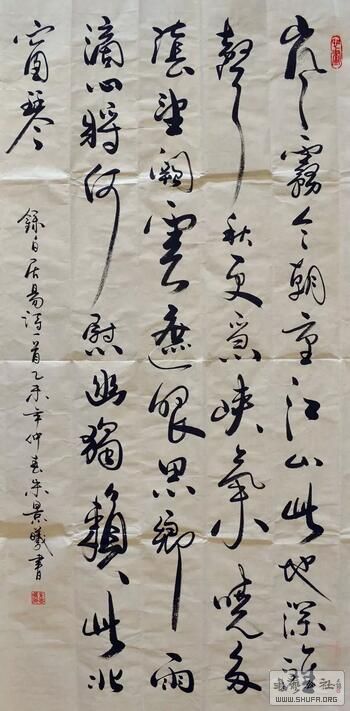 嵐霧今朝重江山此地深灘
聲秋更急峽氣曉多
陰望闕雲遮眼思鄉雨
滴心將何慰幽獨賴此北
窗琴
錄白居易詩一首乙未年仲春朱景曦書
WWW.SHUFA.ORG